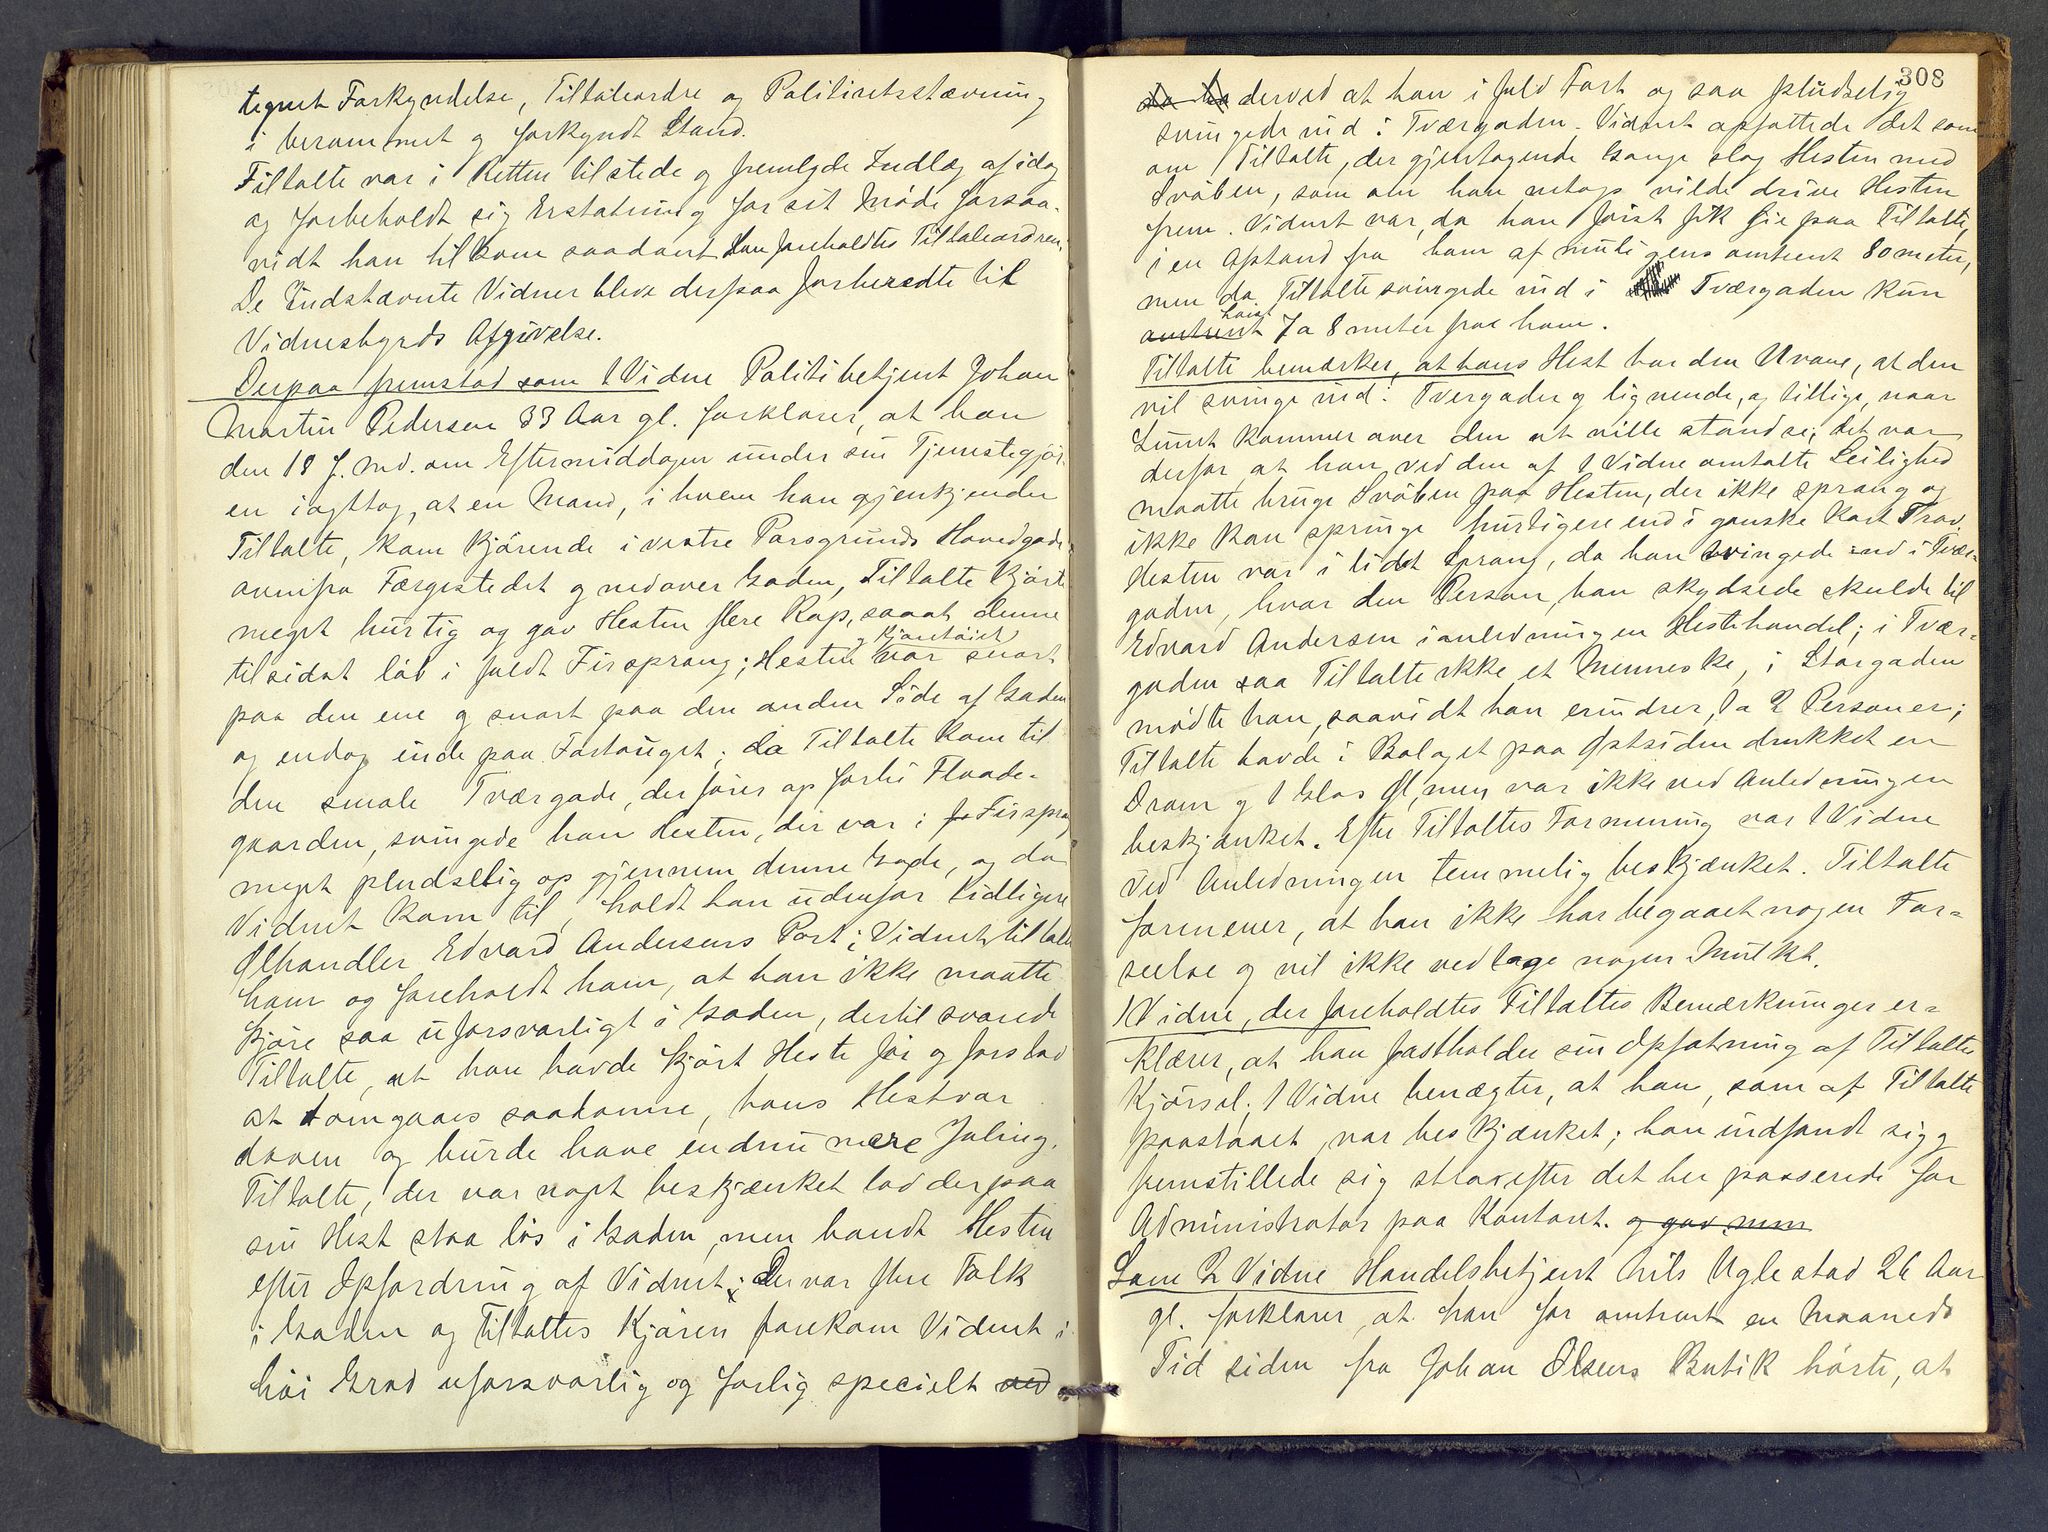 tegnet Forkyndelse, Tiltaleordre og Politiretsstævning
i berammet og forkyndt Stand.
Tiltalte var i Retten tilstede og fremlagde Indlæg af idag
og forbeholdt sig Erstatning for sit Møde forsaa-
vidt han tilkom saadant. Han foreholdtes Tiltaleordren.
De Indstævnte Vidner bleve derpaa forberedte til
Vidnesbyrds Afgivelse.
Derpaa fremstod som 1 Vidne Politibetjent Johan
Martin Pedersen 33 Aar gl. forklarer, at han
den 18 f. Md. om Eftermiddagen under sin Tjenestegjør-
en iagttog, at en Mand, i hvem han gjenkjender
Tiltalte, kom kjørende i vestre Porsgrunds Hovedgade
ovenfra Færgestedet og nedover Gaden, Tiltalte kjørte
meget hurtig og gav Hesten flere Rap, saaat denne
tilsidst løb i fuldt Firsprang; Hesten og Kjøretøiet var snart
paa den ene og snart paa den anden Side af Gaden
og endog inde paa Fortouget; da Tiltalte kom til
den smale Tværgade, der fører op forbi Flaade-
gaarden, svingede han Hesten, der var i fo Firsprang
meget pludselig op gjennem denne Gade, og da
Vidnet kom til, holdt han udenfor tidligere
Ølhandler Edvard Andersens Port; Vidnet tiltalte
ham og foreholdt ham, at han ikke maatte
kjøre saa uforsvarligt i Gaden, dertil svarede
Tiltalte, at han havde kjørt Heste før og forstod
at omgaaes saadanne, hans Hest var
doven og burde have endnu mere Juling.
Tiltalte, der var noget beskjænket lod derpaa
sin Hest staa løs i Gaden, men bandt Hesten
efter Opfordring af Vidnet; Der var flere Folk
i Gaden og Tiltaltes Kjøren forekom Vidnet i
høi Grad uforsvarlig og farlig specielt ved
308
da ha derved at han i fuld Fart og saa pludselig
svingede ind i Tværgaden. Vidnet opfattede det som
om Tiltalte, der gjentagende Gange slog Hesten med
Svøben, som om han netop vilde drive Hesten
frem. Vidnet var, da han først fik Øie paa Tiltalte,
i en Afstand fra ham af muligens omtrent 80 meter,
men da Tiltalte svingede ind i Tværgaden kun
omtrent høist 7 a 8 meter fra ham.
Tiltalte bemærker, at hans Hest har den Uvane, at den
vil svinge ind i Tvergader og lignende, og tillige, naar
Lunet kommer over den at ville standse; det var
derfor, at han ved den af 1 Vidne omtalte Leilighed
maatte bruge Svøben paa Hesten, der ikke sprang og
ikke kan springe hurtigere end i ganske kort Trav.
Hesten var i lidet Sprang, da han svingede ind i Tvær-
gaden, hvor den Person, han skydsede skulde til
Edvard Andersen i anledning en Hestehandel; i Tvær-
gaden saa Tiltalte ikke et Menneske, i Storgaden
mødte han, saavidt han erindrer, 1 a 2 Personer;
Tiltalte havde i Bolaget paa Østsiden drukket en
Dram og 1 Glas Øl, men var ikke ved Anledningen
beskjænket. Efter Tiltaltes Formening var 1 Vidne
ved Anledningen temmelig beskjænket. Tiltalte
formener, at han ikke har begaaet nogen For-
seelse og vil ikke vedtage nogen Mulkt.
1 Vidne, der foreholdtes Tiltaltes Bemærkninger er-
klærer, at han fastholder sin Opfatning af Tiltaltes
Kjørsel; 1 Vidne benægter, at han, som af Tiltalte
paastaaet, var beskjænket; han indfandt sig og
fremstillede sig strax efter det her passerede for
Administrator paa Kontoret. og gav men
Som 2 Vidne Handelsbetjent Nils Uglestad 26 Aar
gl. forklarer, at han for omtrent en Maaneds
Tid siden fra Johan Olsens Butik hørte, at